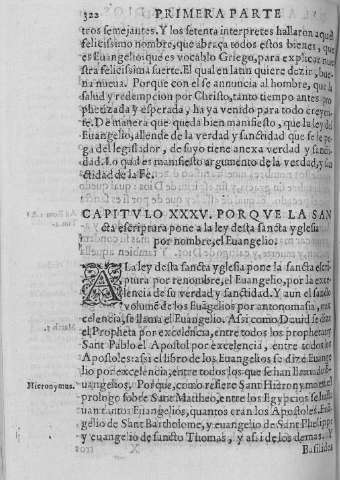 322 PRIMERA PARTE
tros semejantes. Y los setenta interpretes hallaron aquel
felicissimo nombre, que abraça todos estos bienes, que
es Euangelio: que es vocablo Griego, para explicar nue
stra felicissima suerte. El qual en latin quiere dezir, bue-
na nueua. Porque con el se annuncia al hombre, que la
salud y redempcion por Christo, tanto tiempo antes pro
phetizada y esperada, ha ya venido para todo creyen-
te. De manera que queda bien manifiesto, que la ley del
Euangelio, allende de la verdad y sanctidad que se le pe-
ga del legislador, de suyo tiene anexa verdad y sancti-
dad. Lo qual es manifiesto argumento de la verdad, y san
ctidad de la Fe.
CAPITVLO XXXV. PORQVE LA SAN
cta escriptura pone a la ley desta sancta yglesia
por nombre, el Euangelio.
A La ley desta sancta yglesia pone la sancta escri-
ptura por renombre, el Euangelio, por la exce-
lencia de su verdad y sanctidad. Y aun el sancto
volume de los Euangelios por antonomasia, o ex
celencia, se llama el Euangelio. Assi como Dauid se dize
el Propheta por excelencia, entre todos los prophetas: y
Sant Pablo el Apostol por excelencia, entre todos los
Apostoles: assi el libro de los Euangelios se dize Euange
lio por excelencia, entre todos los que se han llamado E-
uangelios. Porque, como refiere Sant Hieronymo en el
Hieronymus.
prologo sobre Sant Mattheo, entre los Egypcios se halla
uan tantos Euangelios, quantos eran los Apostoles. Euā-
gelio de Sant Bartholome, y euangelio de Sant Phelippe
y euangelio de sancto Thomas, y assi de los demas. Y
Basilides